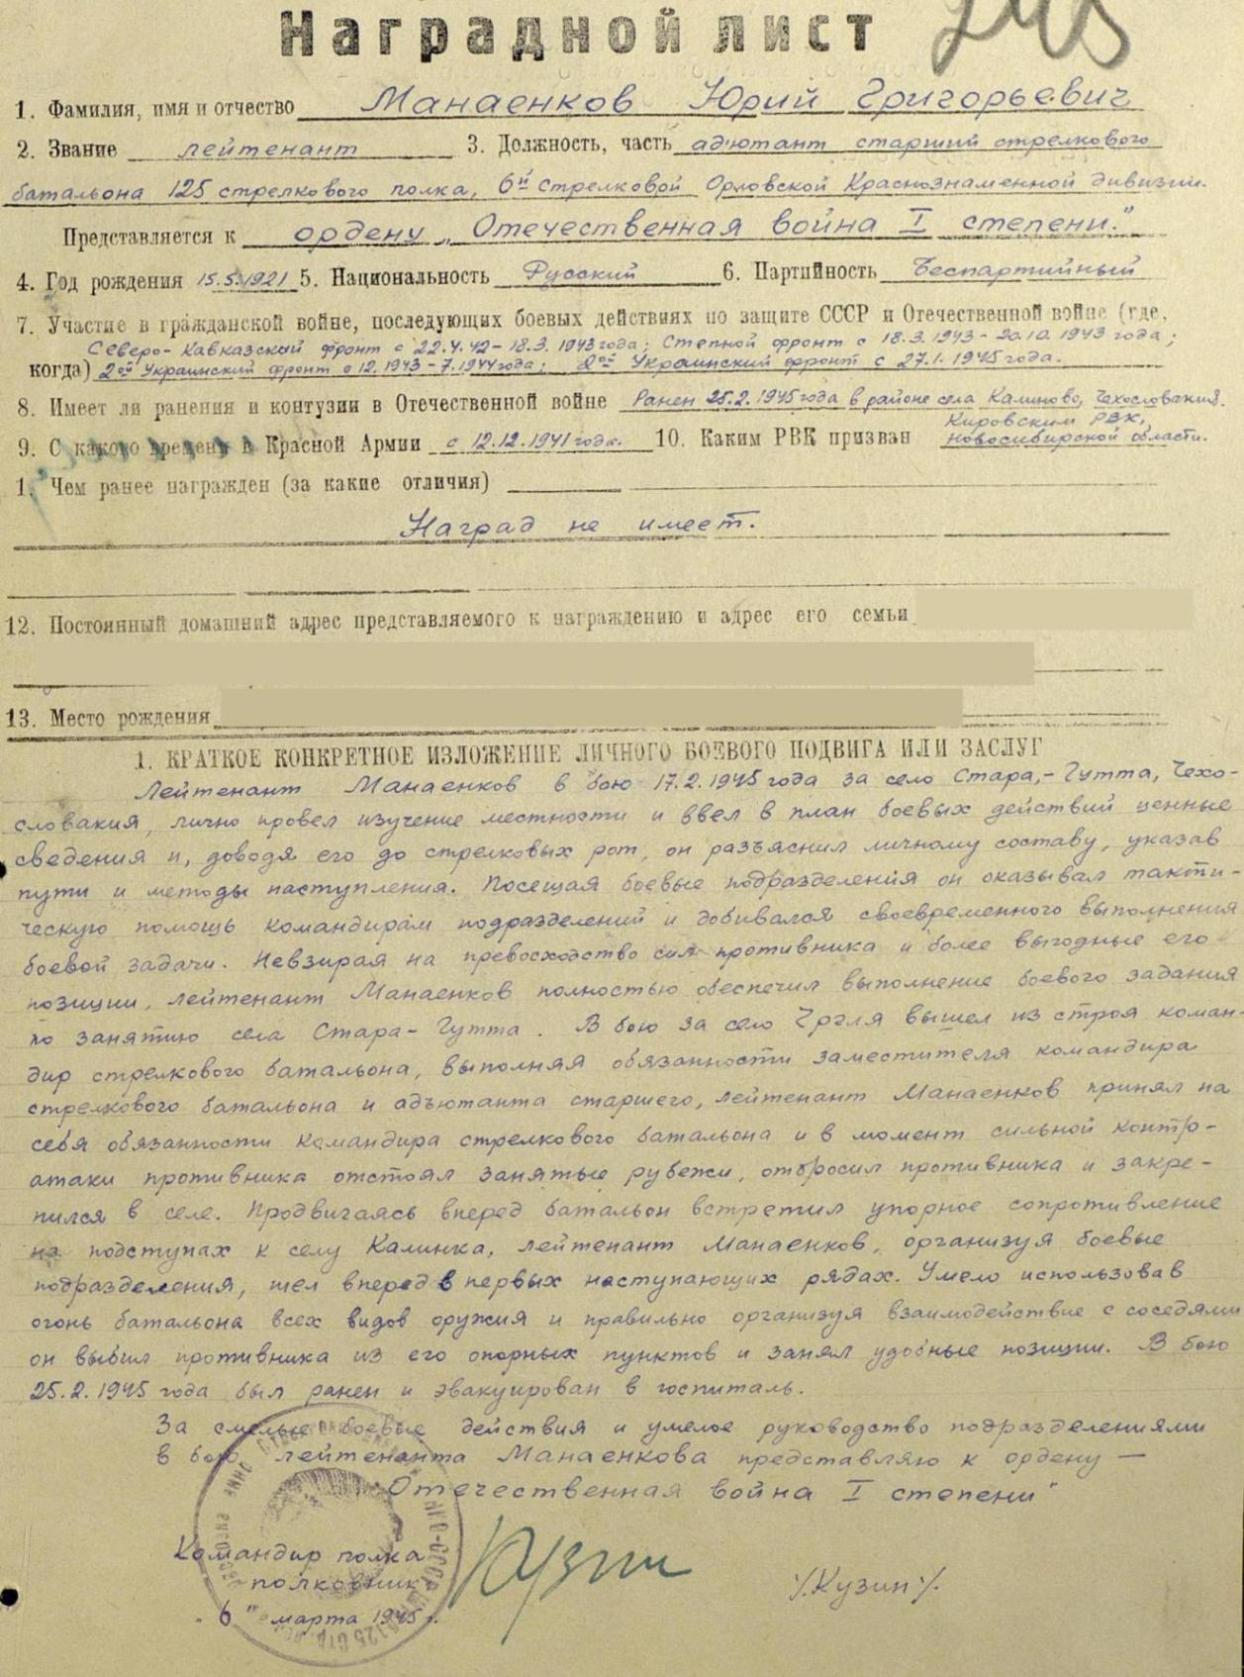 Наградной лист
1. Фамилия, имя и отчество Манаенков Юрий Григорьевич
2. Звание лейтенант 3. Должность, часть адъютант старший стрелкового
батальона 125 стрелкового полка, 6й стрелковой Орловской Краснознаменной дивизии.
Представляется к ордену „Отечественная война I степени."
4. Год рождения 15.5.1921 5. Национальность Русский 6. Партийность Беспартийный
7. Участие в гражданской войне, последующих боевых действиях по защите СССР и Отечественной войне (где,
Северо-Кавказский фронт с 22.4.42-18.3.1943 года; Степной фронт с 18.3.1943-20.10.1943 года;
когда) 2ой Украинский фронт с 12.1943-7.1944 года; 2ой Украинский фронт с 27.1.1945 года.
8. Имеет ли ранения и контузии в Отечественной войне Ранен 25.2.1945 года в районе села Калиново, Чехословакия.
9. С какого времени в Красной Армии с 12.12.1941 года. 10. Каким РВК призван Кировским РВК,
Новосибирской области.
1. Чем ранее награжден (за какие отличия)
Наград не имеет.
12. Постоянный домашний адрес представляемого к награждению и адрес его семьи
13. Место рождения
1. КРАТКОЕ КОНКРЕТНОЕ ИЗЛОЖЕНИЕ ЛИЧНОГО БОЕВОГО ПОДВИГА ИЛИ ЗАСЛУГ
Лейтенант Манаенков в бою 17.2.1945 года за село Стара,-Гутта, Чехо-
словакия, лично провел изучение местности и ввел в план боевых действий ценные
сведения и, доводя его до стрелковых рот, он разъяснил личному составу, указав
пути и методы наступления. Посещая боевые подразделения он оказывал такти-
ческую помощь командирам подразделений и добивался своевременного выполнения
боевой задачи. Невзирая на превосходство сил противника и более выгодные его
позиции, лейтенант Манаенков полностью обеспечил выполнение боевого задания
по занятию села Стара-Гутта. В бою за село вышел из строя коман-
дир стрелкового батальона, выполняя обязанности заместителя командира
стрелкового батальона и адъютанта старшего, лейтенант Манаенков принял на
себя обязанности командира стрелкового батальона и в момент сильной контр-
атаки противника отстоял занятые рубежи, отбросил противника и закре-
пился в селе. Продвигаясь вперед батальон встретил упорное сопротивление
на подступах к селу Калинка, лейтенант Манаенков, организуя боевые
подразделения, шел вперед в первых наступающих рядах. Умело использовав
огонь батальона всех видов оружия и правильно организуя взаимодействие с соседями
он выбил противника из его опорных пунктов и занял удобные позиции. В бою
25.2.1945 года был ранен и эвакуирован в госпиталь.
За смелые боевые действия и умелое руководство подразделениями
в бою лейтенанта Манаенкова представляю к ордену —
"Отечественная война I степени"
Командир полка
полковник Кузин /.Кузин/.
„6" марта 1945 г.